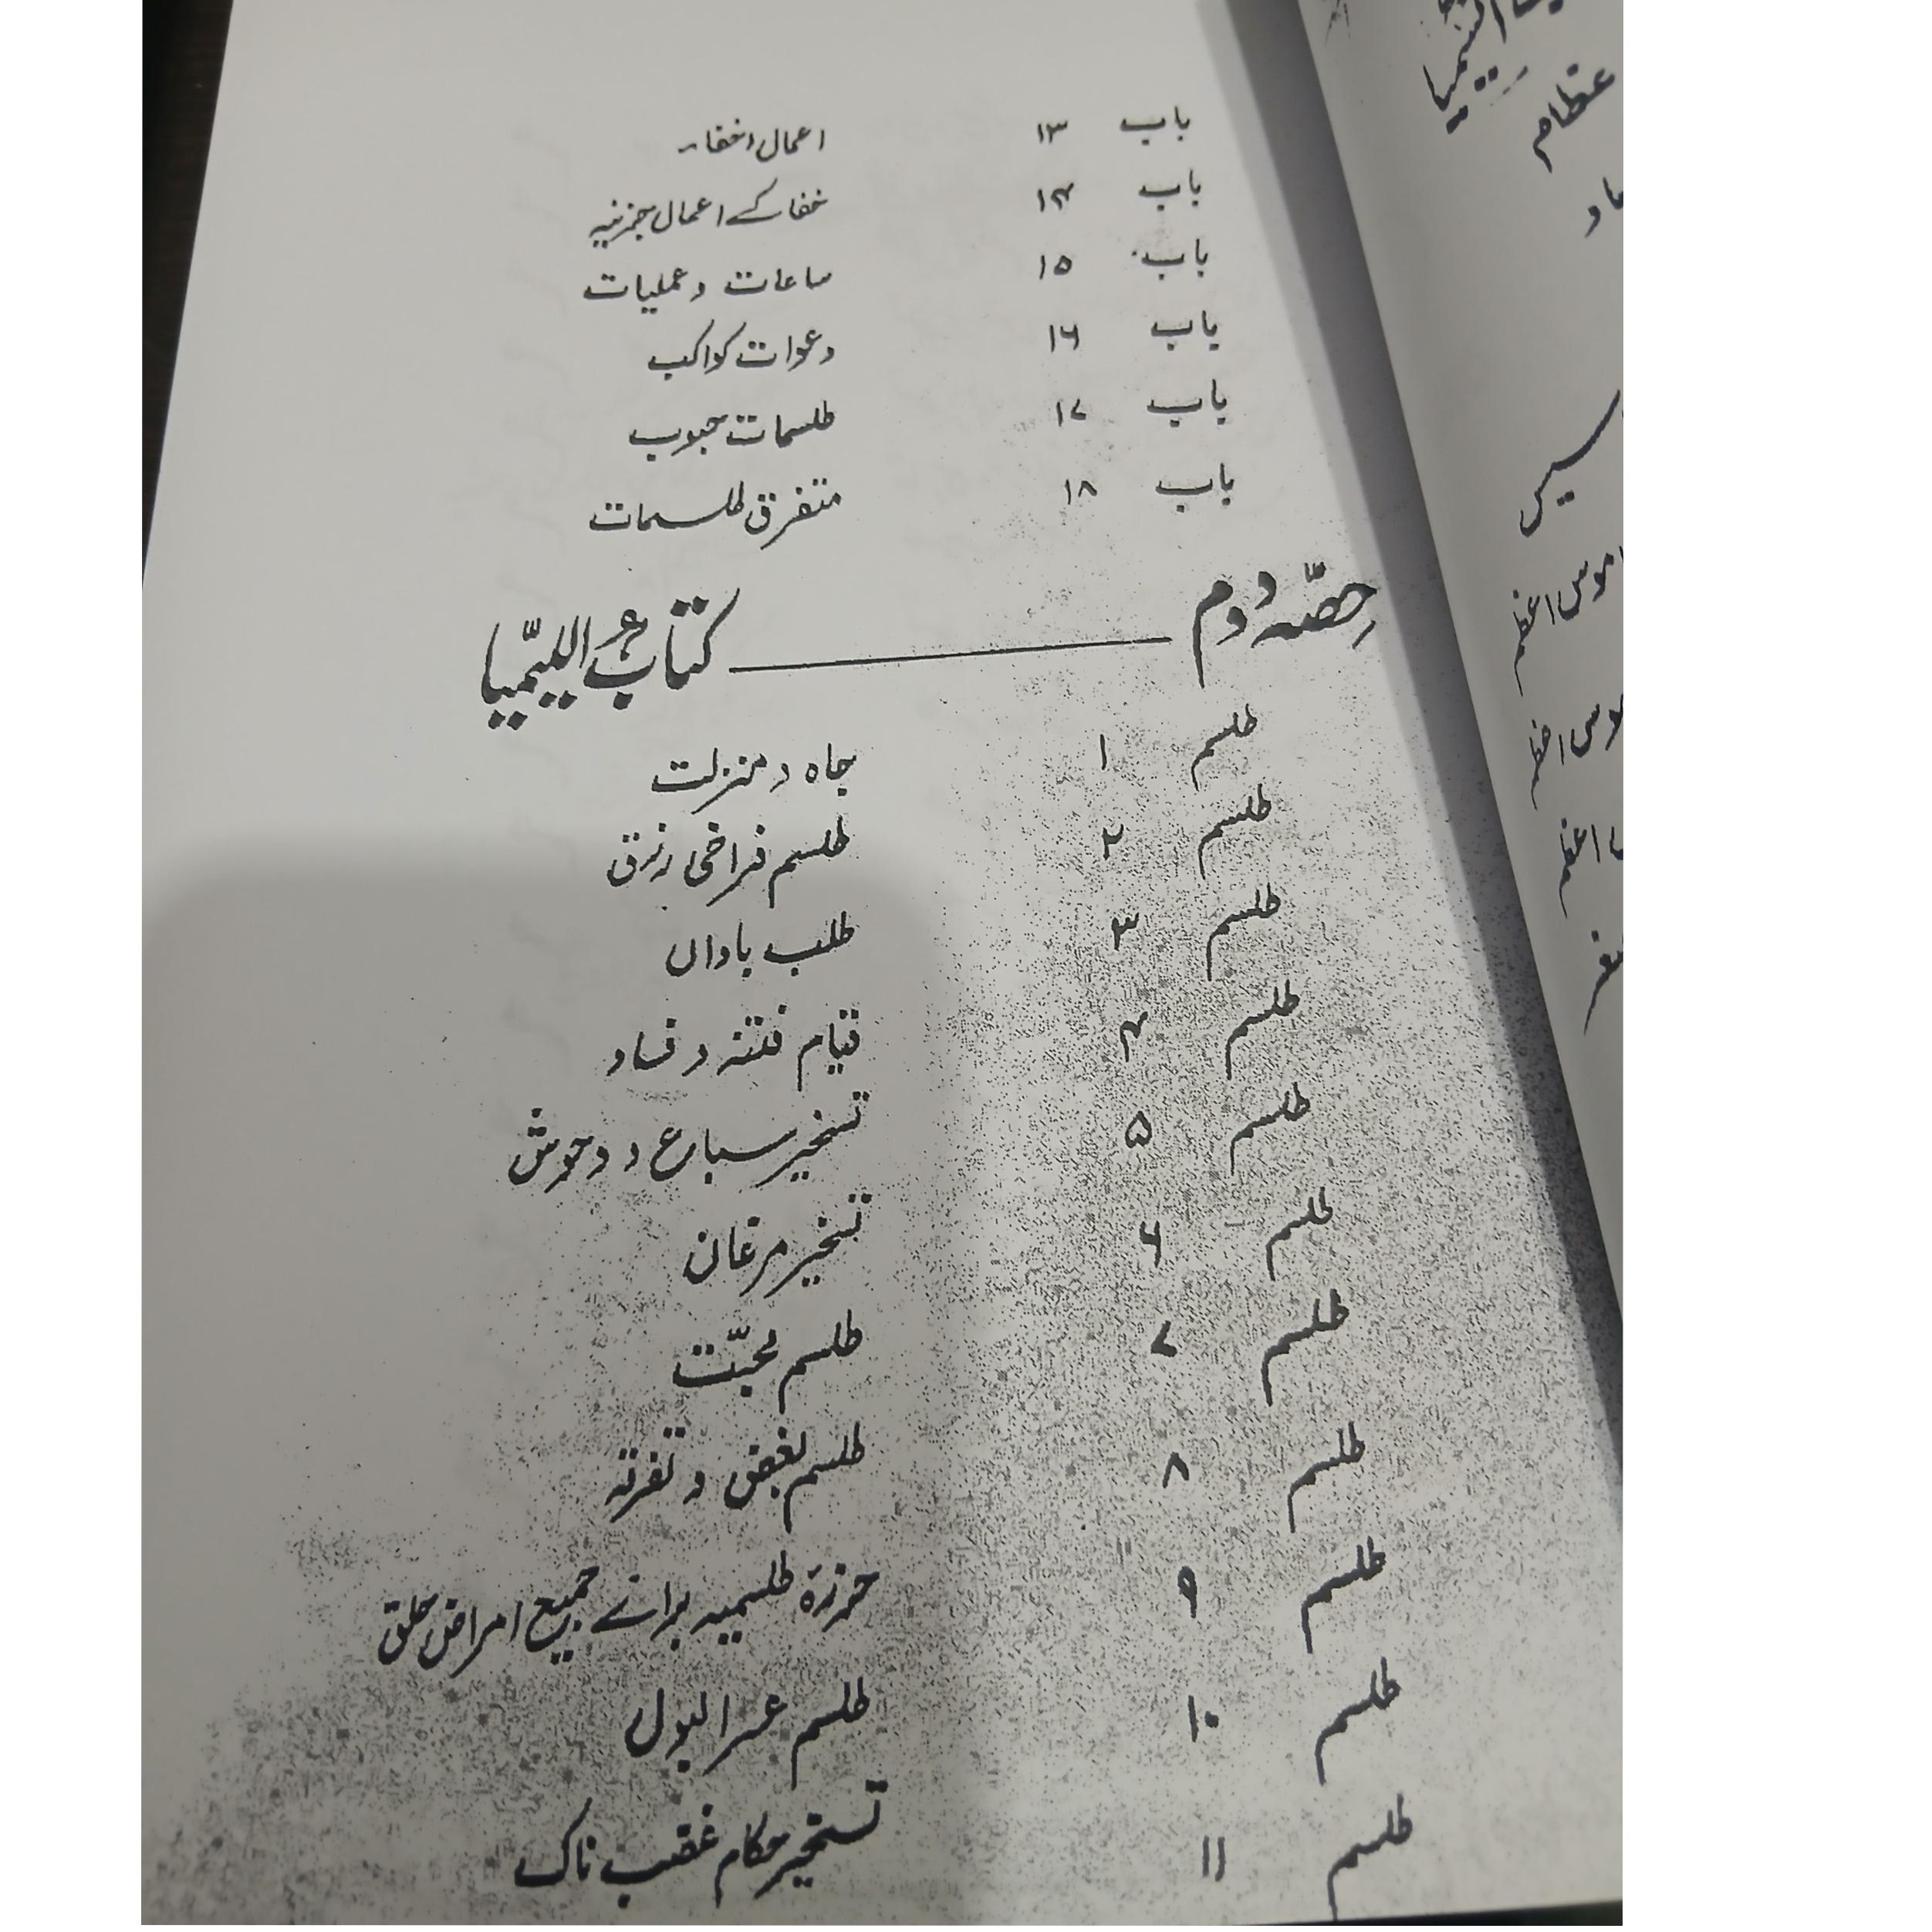 باب ۱۳ اعمال اخفاء
باب ۱۴ خفا کے اعمال جزئیہ
باب ۱۵ ساعات و عملیات
باب ۱۶ دعوات کواکب
باب ۱۷ طلسمات حبوب
باب ۱۸ متفرق طلسمات
حصّہ دوم کتاب اللیمیا
طلسم ۱ جاہ و منزلت
طلسم ۲ طلسم فراخی رزق
طلسم ۳ طلب باداں
طلسم ۴ قیام فتنہ و فساد
طلسم ۵ تسخیر سباع و وحوش
طلسم ۶ تسخیر مرغان
طلسم ۷ طلسم محبّت
طلسم ۸ طلسم بغض و تفرقہ
طلسم ۹ حرزۃ طلسمیہ برائے جمیع امراض حلق
طلسم ۱۰ طلسم عسر البول
طلسم ۱۱ تسخیر حکام غضب ناک
عظام